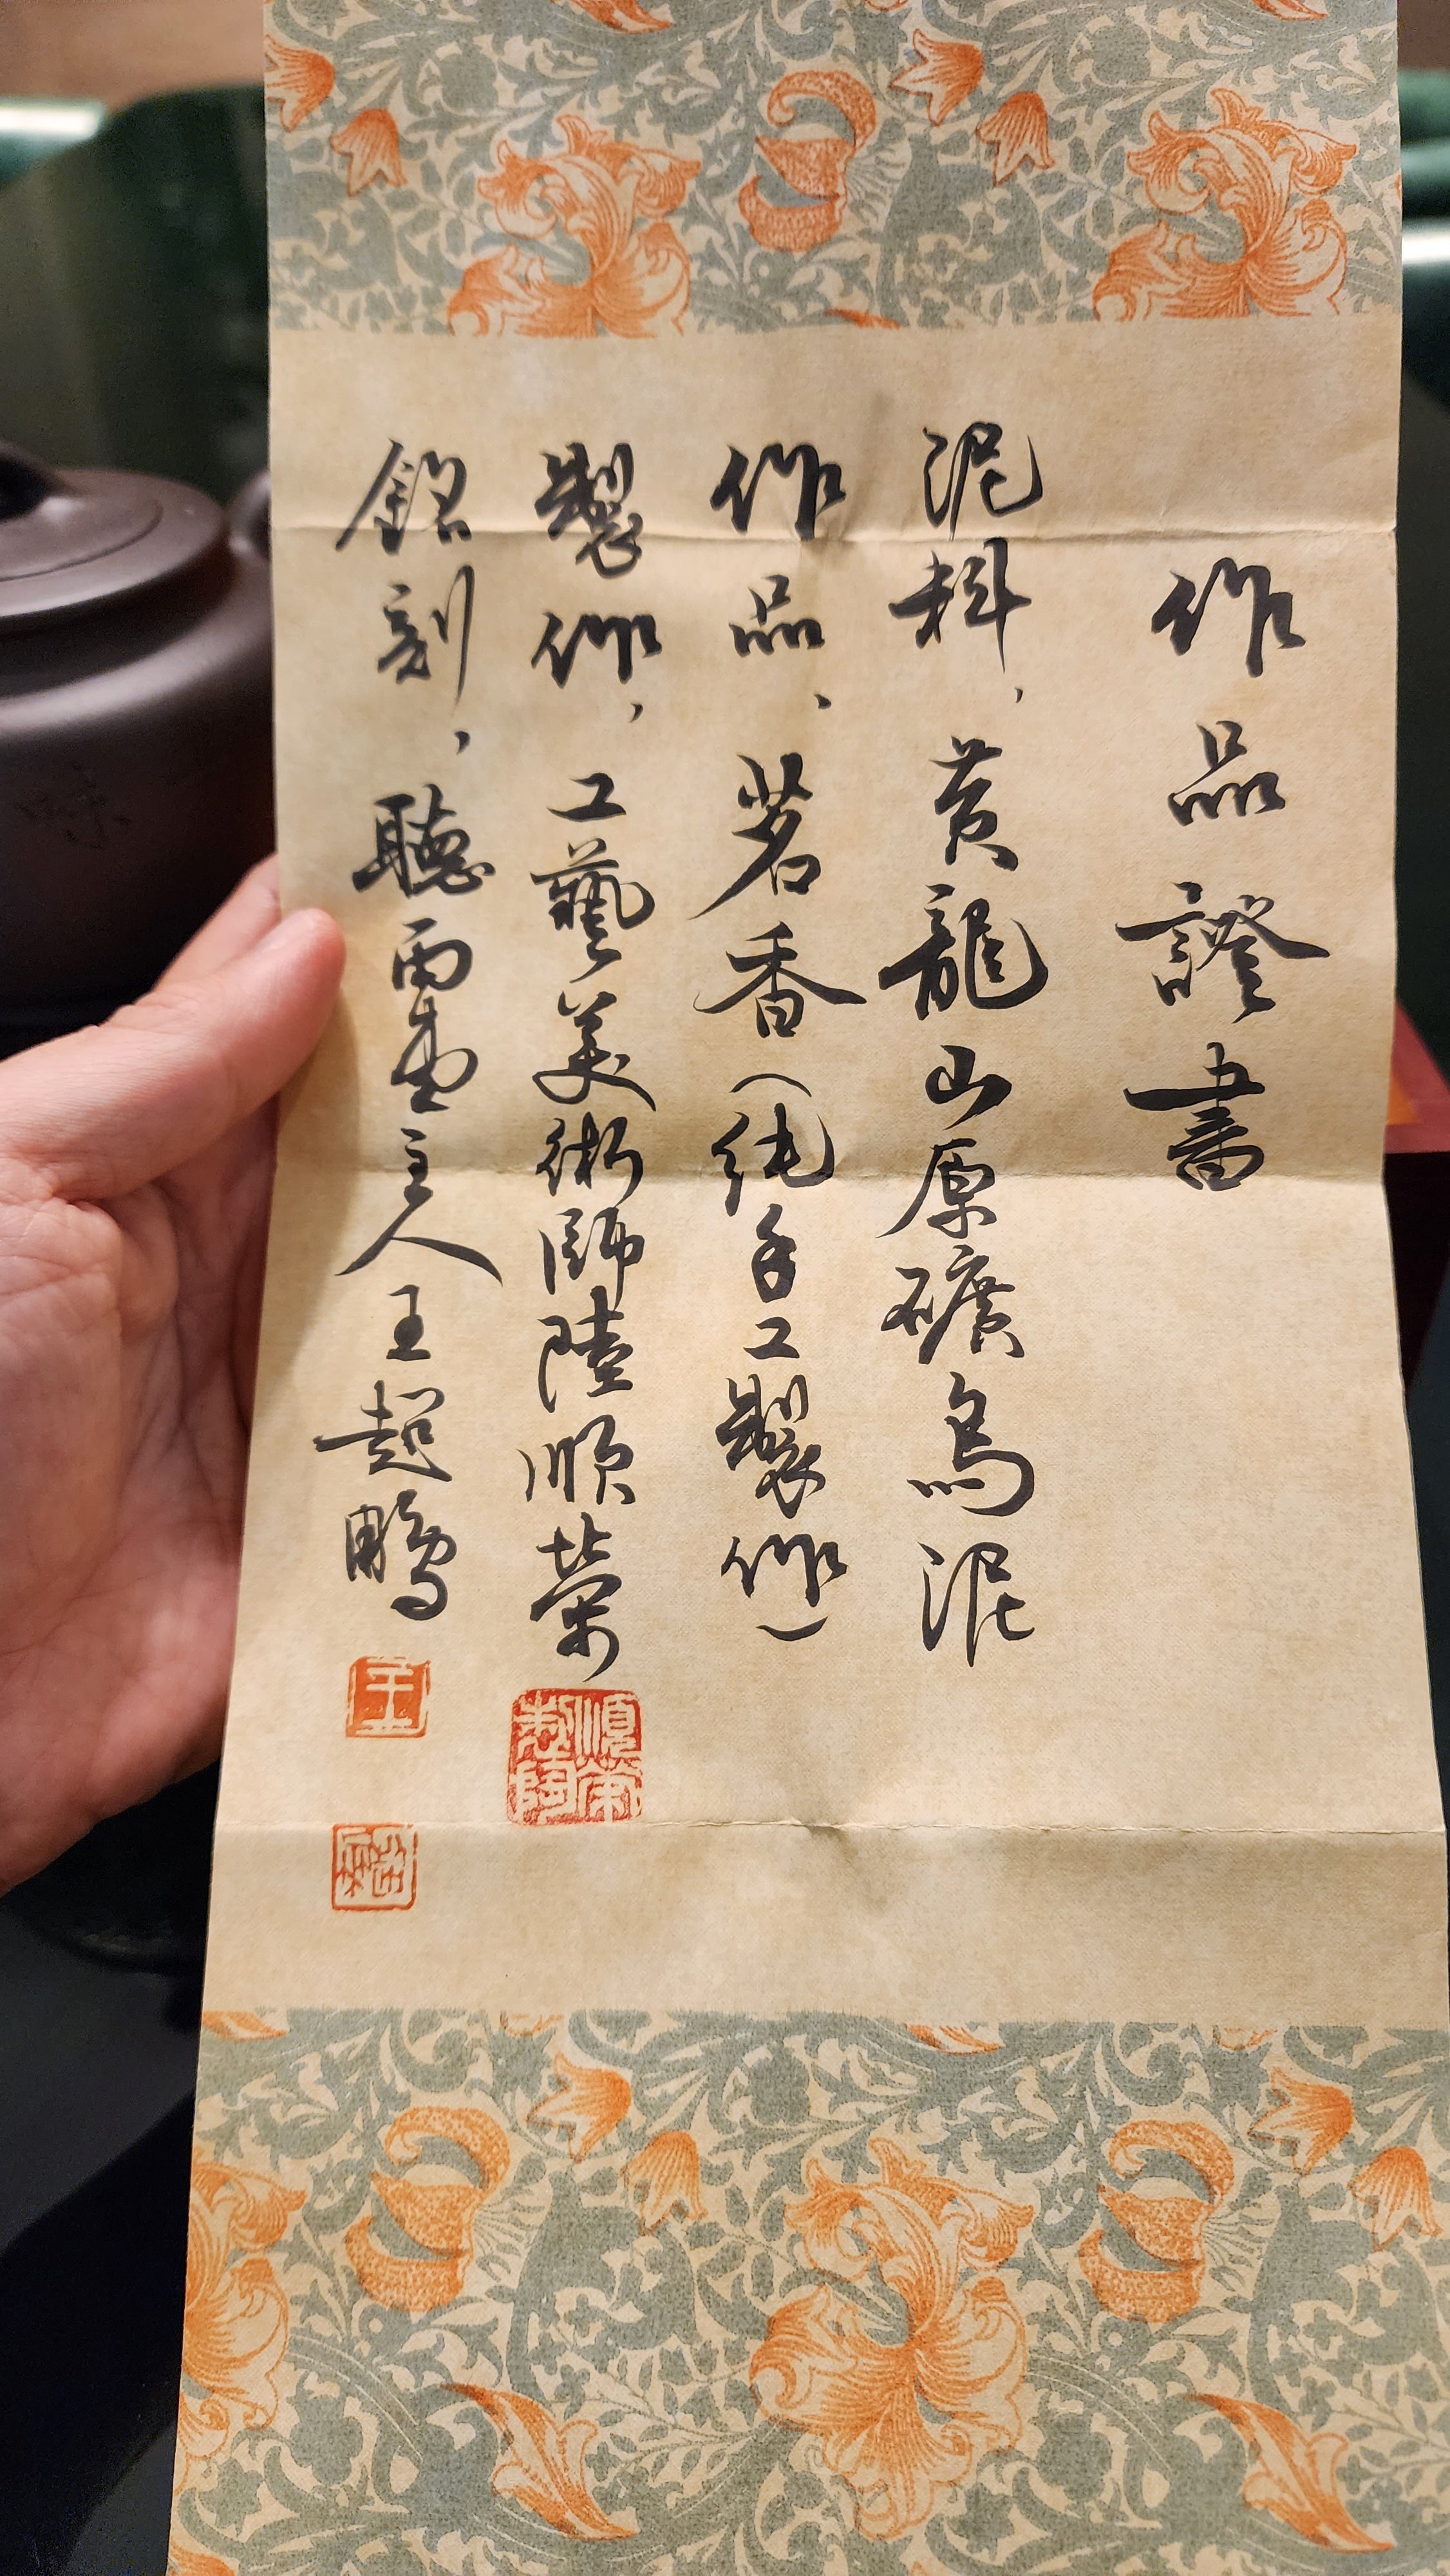 作品證書
泥料，黃龍山原礦烏泥
作品、茗香（純手工製作）
製作，工藝美術師陸順榮
銘刻，聽雨壺主人王超鵬
順榮製陶
王